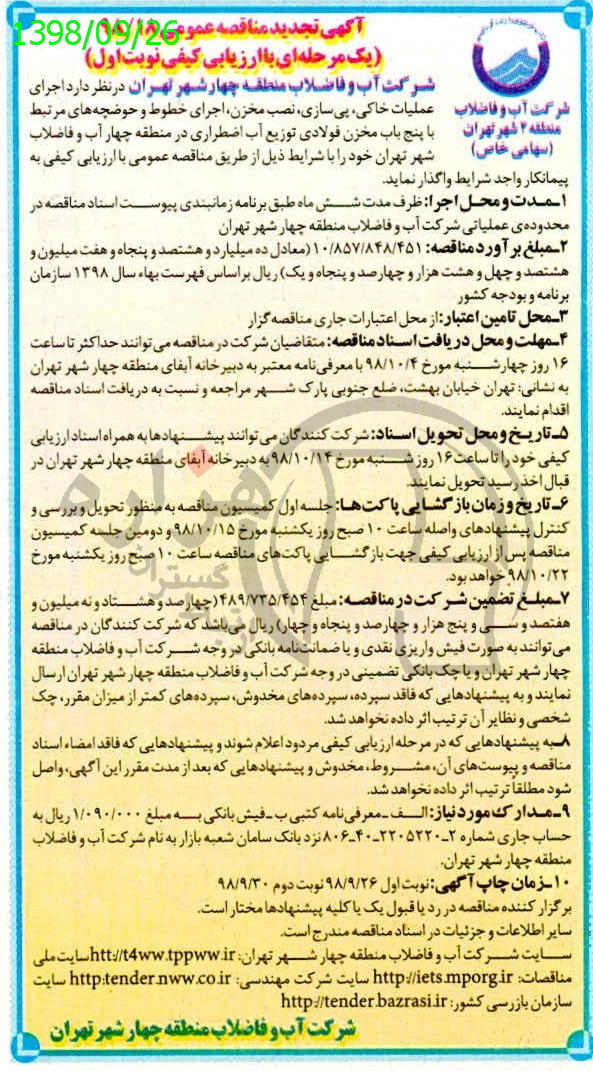 1398/09/26
آگهی تجدید مناقصه عمومی
(یک مرحله‌ای با ارزیابی کیفی نوبت اول)
شرکت آب و فاضلاب
منطقه ۴ شهر تهران
(سهامی خاص)
شرکت آب و فاضلاب منطقه چهار شهر تهران در نظر دارد اجرای
عملیات خاکی، پی‌سازی، نصب مخزن، اجرای خطوط و حوضچه‌های مرتبط
با پنج باب مخزن فولادی توزیع آب اضطراری در منطقه چهار آب و فاضلاب
شهر تهران خود را با شرایط ذیل از طریق مناقصه عمومی با ارزیابی کیفی به
پیمانکار واجد شرایط واگذار نماید.
۱ـ مدت و محل اجرا: ظرف مدت شش ماه طبق برنامه زمانبندی پیوست اسناد مناقصه در
محدوده‌ی عملیاتی شرکت آب و فاضلاب منطقه چهار شهر تهران
۲ـ مبلغ برآورد مناقصه: ۱۰/۸۵۷/۸۴۸/۴۵۱ (معادل ده میلیارد و هشتصد و پنجاه و هفت میلیون و
هشتصد و چهل و هشت هزار و چهارصد و پنجاه و یک) ریال براساس فهرست بهاء سال ۱۳۹۸ سازمان
برنامه و بودجه کشور
۳ـ محل تامین اعتبار: از محل اعتبارات جاری مناقصه‌گزار
۴ـ مهلت و محل دریافت اسناد مناقصه: متقاضیان شرکت در مناقصه می‌توانند حداکثر تا ساعت
۱۶ روز چهارشنبه مورخ ۹۸/۱۰/۴ با معرفی‌نامه معتبر به دبیرخانه آبفای منطقه چهار شهر تهران
به نشانی: تهران خیابان بهشت، ضلع جنوبی پارک شهر مراجعه و نسبت به دریافت اسناد مناقصه
اقدام نمایند.
۵ـ تاریخ و محل تحویل اسناد: شرکت کنندگان می‌توانند پیشنهادها به همراه اسناد ارزیابی
کیفی خود را تا ساعت ۱۶ روز شنبه مورخ ۹۸/۱۰/۱۴ به دبیرخانه آبفای منطقه چهار شهر تهران در
قبال اخذ رسید تحویل نمایند.
۶ـ تاریخ و زمان بازگشایی پاکت‌ها: جلسه اول کمیسیون مناقصه به منظور تحویل و بررسی و
کنترل پیشنهادهای واصله ساعت ۱۰ صبح روز یکشنبه مورخ ۹۸/۱۰/۱۵ و دومین جلسه کمیسیون
مناقصه پس از ارزیابی کیفی جهت بازگشایی پاکت‌های مناقصه ساعت ۱۰ صبح روز یکشنبه مورخ
۹۸/۱۰/۲۲ خواهد بود.
۷ـ مبلغ تضمین شرکت در مناقصه: مبلغ ۴۸۹/۷۳۵/۴۵۴ (چهارصد و هشتاد و نه میلیون و
هفتصد و سی و پنج هزار و چهارصد و پنجاه و چهار) ریال می‌باشد که شرکت کنندگان در مناقصه
می‌توانند به صورت فیش واریزی نقدی و یا ضمانت‌نامه بانکی در وجه شرکت آب و فاضلاب منطقه
چهار شهر تهران و یا چک بانکی تضمینی در وجه شرکت آب و فاضلاب منطقه چهار شهر تهران ارسال
نمایند و به پیشنهادهایی که فاقد سپرده، سپرده‌های مخدوش، سپرده‌های کمتر از میزان مقرر، چک
شخصی و نظایر آن ترتیب اثر داده نخواهد شد.
۸ـ به پیشنهادهایی که در مرحله ارزیابی کیفی مردود اعلام شوند و پیشنهادهایی که فاقد امضاء اسناد
مناقصه و پیوست‌های آن، مشروط، مخدوش و پیشنهادهایی که بعد از مدت مقرر این آگهی، واصل
شود مطلقاً ترتیب اثر داده نخواهد شد.
۹ـ مدارک مورد نیاز: الف ـ معرفی‌نامه کتبی ب ـ فیش بانکی به مبلغ ۱/۰۹۰/۰۰۰ ریال به
حساب جاری شماره ۲ـ۲۲۰۵۲۲۰ـ۴۰ـ۸۰۶ نزد بانک سامان شعبه بازار به نام شرکت آب و فاضلاب
منطقه چهار شهر تهران.
۱۰ـ زمان چاپ آگهی: نوبت اول ۹۸/۹/۲۶ نوبت دوم ۹۸/۹/۳۰
برگزار کننده مناقصه در رد یا قبول یک یا کلیه پیشنهادها مختار است.
سایر اطلاعات و جزئیات در اسناد مناقصه مندرج است.
سایت شرکت آب و فاضلاب منطقه چهار شهر تهران: htt://t4ww.tppww.ir سایت ملی
مناقصات: http://iets.mporg.ir سایت شرکت مهندسی: http:tender.nww.co.ir سایت
سازمان بازرسی کشور: http://tender.bazrasi.ir
شرکت آب و فاضلاب منطقه چهار شهر تهران